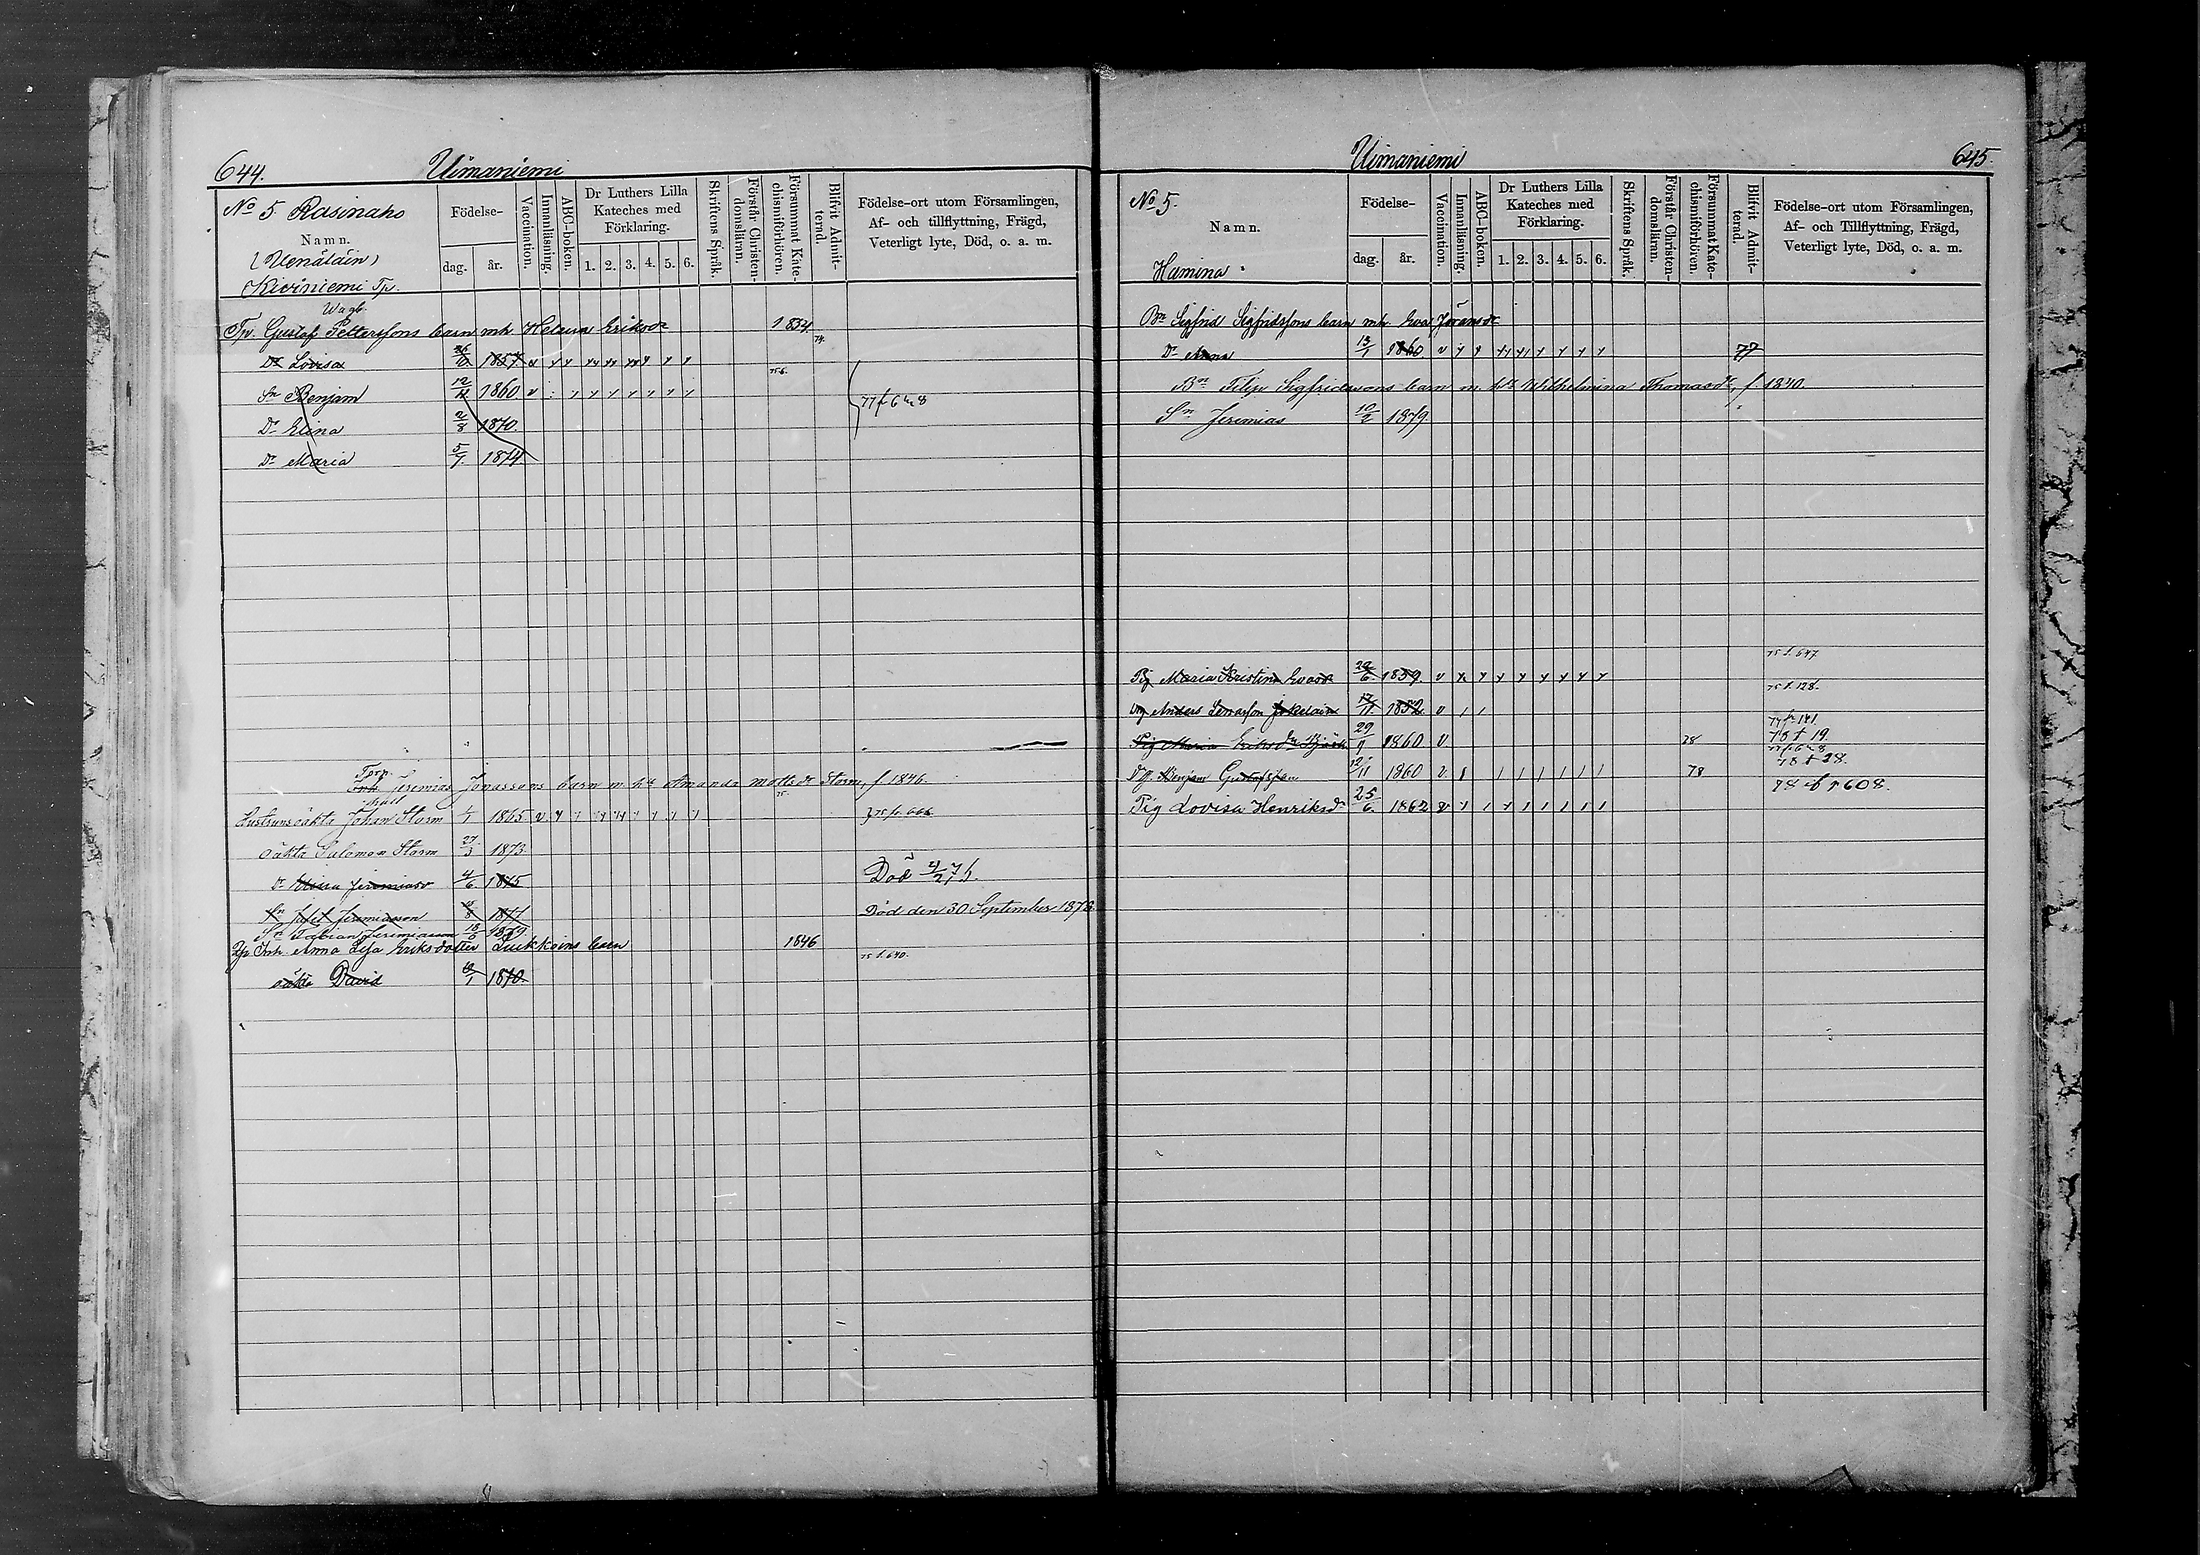 644.
Uimaniemi
No 5. Rasinaho
Namn.
(Venäläin)
Kiviniemi Tp.
Födelse-
dag.
år.
Vaccination.
Innanläsning.
ABC-boken.
Dr Luthers Lilla
Kateches med
Förklaring.
1. 2. 3. 4. 5. 6.
Skriftens Språk.
Förstår Christen-
domsläran.
Försummat Kate-
chismiförhören.
Blifvit Admit-
terad.
Födelse-ort utom Församlingen,
Af- och tillflyttning, Frägd,
Veterligt lyte, Död, o. a. m.
Tp. Gustaf Petterssons barn mh Helena Eriksdr 1834
Dr Lovisa 26/10 1857 v
Sn Benjam 12/11 1860 v
77 f 6 n 8
Dr Elina 2/8 1870.
Dr Maria 5/7. 1874
Torp.
Jeremias Jonassons barn m. hu Amanda Mattsdr Storm, f 1846.
oäkta Johan Storm 1/1 1865 v
75 fr 666
oäkta Salomon Storm 27/3 1873.
Dr Jeremiasdr 4/6 1875
Död 4/2 75.
Sn Jafet Jeremiasson 1877
Död den 30 September 1878
Sn Fabian Jeremiasson 18/6 1879.
Inh. Anna Lisa Eriksdotter Luukkoins barn 1846
75 f. 640.
oäkta David 1870.
Uimaniemi
645.
No 5.
Namn.
Hamina
Födelse-
dag.
år.
Vaccination.
Innanläsning.
ABC-boken.
Dr Luthers Lilla
Kateches med
Förklaring.
1. 2. 3. 4. 5. 6.
Skriftens Språk.
Förstår Christen-
domsläran.
Försummat Kate-
chismiförhören.
Blifvit Admit-
terad.
Födelse-ort utom Församlingen,
Af- och Tillflyttning, Frägd,
Veterligt lyte, Död, o. a. m.
Bn Sigfrid Sigfridssons barn mh. Eva Göransdr
Dr Anna 13/1 1860 v 77
Bn Filip Sigfridssons barn m. hu Wilhelmina Thomasdr, f 1840.
Sn Jeremias 10/2 1879
75 f. 647
Pig Maria Kristina Evasdr 22/6 1859. v
75 f. 128.
Anders 17/11 1852 v
77 fr 141.
Pig Maria Eriksdr 29/9 1860 v. 78
78 f 19
77 f. 6 n 8
Dg. Benjam Gustafsson 12/11 1860 v. 78
78 f 28.
Pig Lovisa Henriksdr 25/6. 1862 v
78 fr 608.